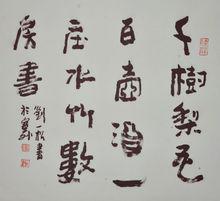 千樹梨花
百壺酒一
庄水竹數
房書
劉一書
於